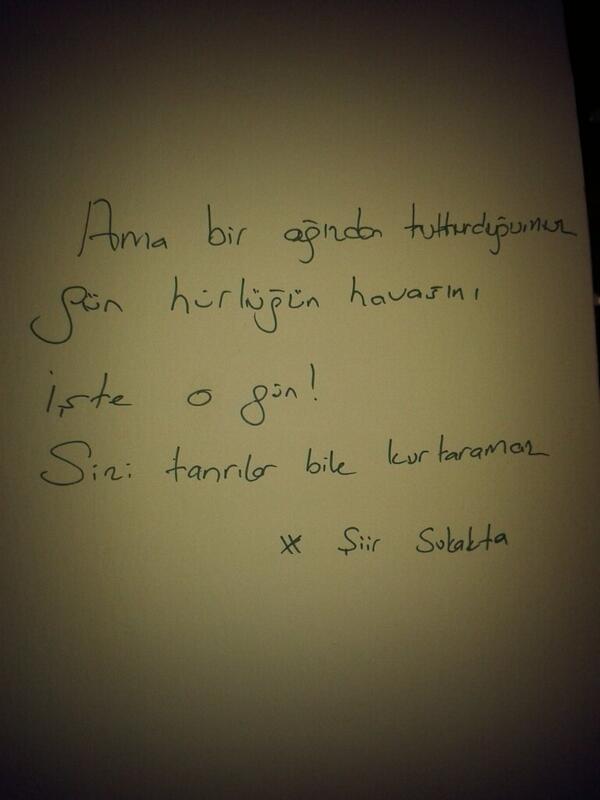 Ama bir ağızdan tutturduğumuz
gün hürlüğün havasını
işte o gün!
Sizi tanrılar bile kurtaramaz
* Şiir Sokakta